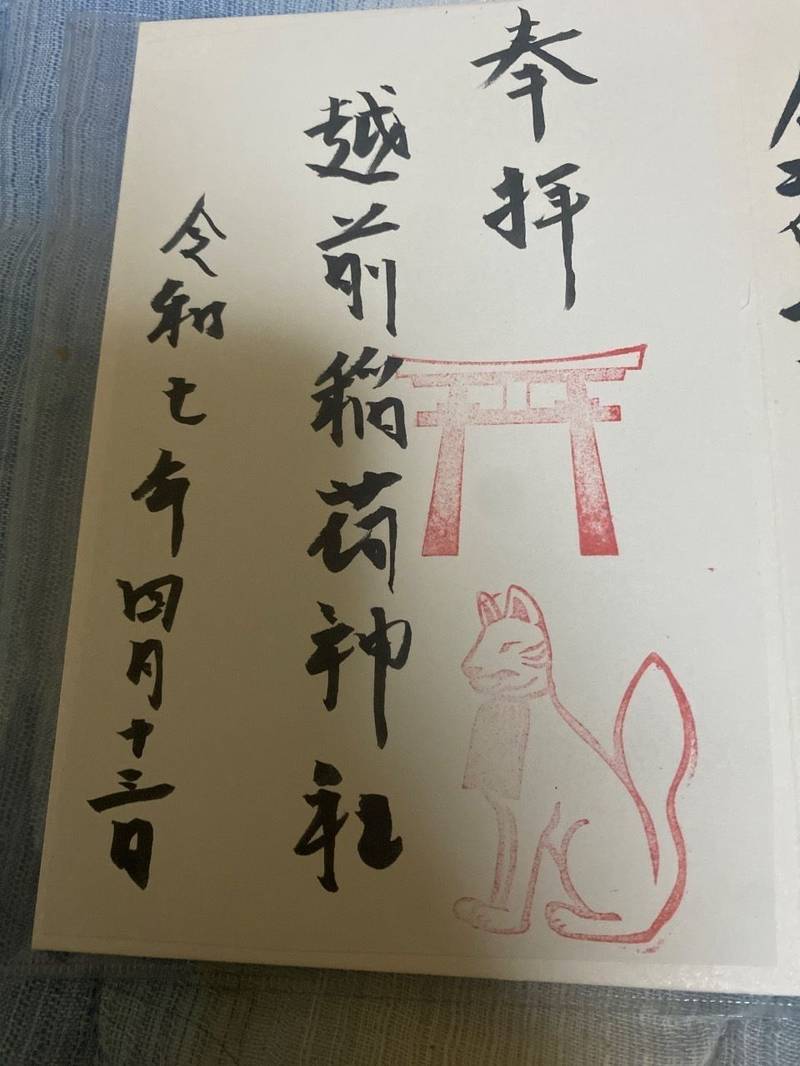 奉拝
越前稲荷神社
令和七年四月十三日